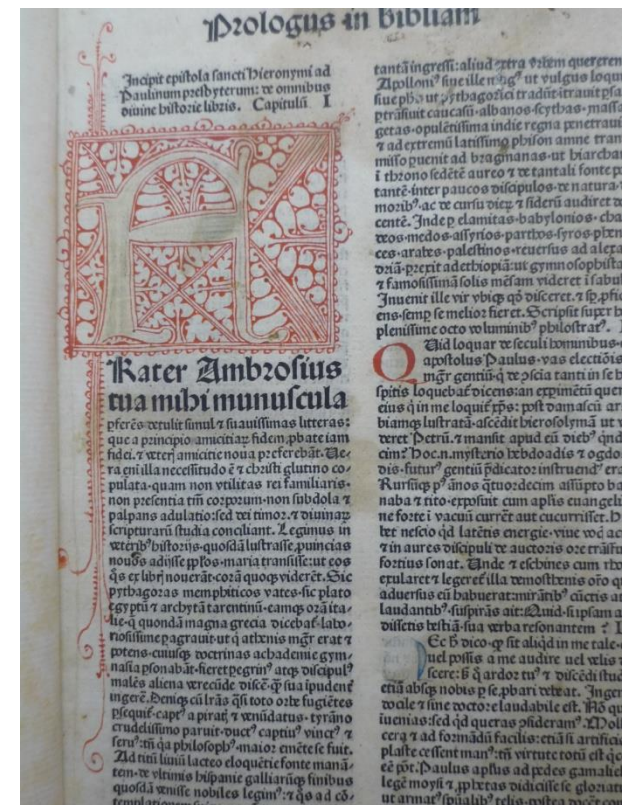 Prologus in bibliam
Incipit epistola sancti Hieronymi ad
Paulinum presbyterum: de omnibus
diuine historie libris. Capitulū I
FRater Ambrosius
tua mihi munuscula
ꝑferēs·detulit simul ⁊ suauissimas litteras:
que a principio amicitiaꝝ fidem ꝓbate iam
fidei·⁊ veteris amicitie noua p̄ferebāt. Ue-
ra eni illa necessitudo ē ⁊ christi glutino co-
pulata·quam non vtilitas rei familiaris·
non presentia tm̄ corporum·non subdola ⁊
palpans adulatio:sed dei timor·⁊ diuinaꝝ
scripturarū studia conciliant. Legimus in
veteribꝰ historijs·quosdā lustrasse ꝓuincias
nouos adijsse pp̄los·maria transisse:ut eos
q̄s ex libris nouerāt·corā quoqꝫ viderēt. Sic
pythagoras memphiticos vates·sic plato
egyptū ⁊ archytā tarentinū·eamqꝫ orā ita-
lie·q̄ quondā magna grecia dicebat·labo-
riosissime ꝑagrauit:ut q̄ athenis mgr̄ erat ⁊
potens·cuiusqꝫ doctrinas achademie gym-
nasia ꝑsonabāt·fieret ꝑegrinꝰ atqꝫ discipulꝰ
malēs aliena verecūde discē·q̄ꝫ sua īpudent̄
ingerē. Deniqꝫ cū lr̄as q̄si toto orbe fugiētes
ꝑsequit·captꝰ a piratis ⁊ venūdatus·tyrāno
crudelissimo paruit·ductꝰ captiuꝰ vinctꝰ ⁊
seruꝰ:tn̄ qa philosophꝰ·maior emēte se fuit.
Ad titū liuiū lacteo eloquētie fonte manā-
tem·de vltimis hispanie galliarūqꝫ finibus
quosdā venisse nobiles legimꝰ:⁊ q̄s ad cō-
tantā ingressi:aliud extra vrbem quererent
Apollonꝰ siue ille magꝰ ut vulgus loqui
siue ph̄o ut pythagorici tradūt·itrauit ꝑsa
ꝑtrāsiuit caucasū·albanos·scythas·massa
getas·opulētissima indie regna penetraui
⁊ ad extremū latissimo phison amne tran
misso ꝑuenit ad bragmanas·ut hiarchā
ī throno sedētē aureo ⁊ de tantali fonte po
tantē·inter paucos discipulos·de natura·
moribꝰ·ac de cursu dieꝝ ⁊ siderū audiret do
centē. Inde ꝑ elamitas·babylonios·cha
deos·medos·assyrios·parthos·syros·phen
ces·arabes·palestinos·reuersus ad alexa
driā·ꝑrexit ad ethiopiā:ut gymnosophista
⁊ famosissimā solis mēsam videret ī sabul
Inuenit ille vir vbiqꝫ qd̄ disceret·⁊ sꝑ ꝓfici
ens·semꝑ se melior fieret. Scripsit super h
plenissime octo voluminibꝰ philostratꝰ.
QUid loquar de seculi hominibus·
apostolus Paulus·vas electiōis
mgr̄ gentiū·q̄ de ꝯscia tanti in se h
spitis loquebat̄ dicens:an exꝑimētū quer
eius q̄ in me loquit̄ xp̄s: post damascū ar
biamqꝫ lustratā·ascēdit hierosolymā ut v
deret Petrū·⁊ mansit apud eū diebꝰ q̄nd
cim? Hoc·n·mysterio hebdoadis ⁊ ogdo
dis·futurꝰ gentiū p̄dicator instruendꝰ era
Rursūqꝫ pꝰ ānos q̄tuordecim assūpto ba
naba ⁊ tito·exposuit cum apl̄is euangeliu
ne forte ī vacuū currēt aut cucurrisset. H
bet nescio qd̄ latētis energie·viue voc̄ ac
⁊ in aures discipuli de auctoris ore trāsfu
fortius sonat. Unde ⁊ eschines cum rho
exularet ⁊ legeret̄ illa demosthenis oro q
aduersus eū habuerat:mirātibꝰ cūctis at
laudantibꝰ·suspirās ait:Quid·si ipsam a
dissetis bestiā·sua verba resonantem ?
Ec h̄ dico·qꝫ sit aliqd̄ in me tale·
uel possis a me audire uel velis
scere:s̄ q̄ ardor tuꝰ ⁊ discēdi stud
etiā absqꝫ nobis ꝑ se·ꝓbari debeat. Ingen
docile ⁊ sine doctore laudabile est. Nō qu
īuenias:sed qd̄ queras ꝯsideram⁹. Moll
cera ⁊ ad formādū facilis:etiā si artifici
plaste cessent manꝰ:tn̄ virtute totū est q
eē pōt. Paulus apl̄us ad pedes gamaliel
legē moysi ⁊ ꝓphetas didicisse se gloriat